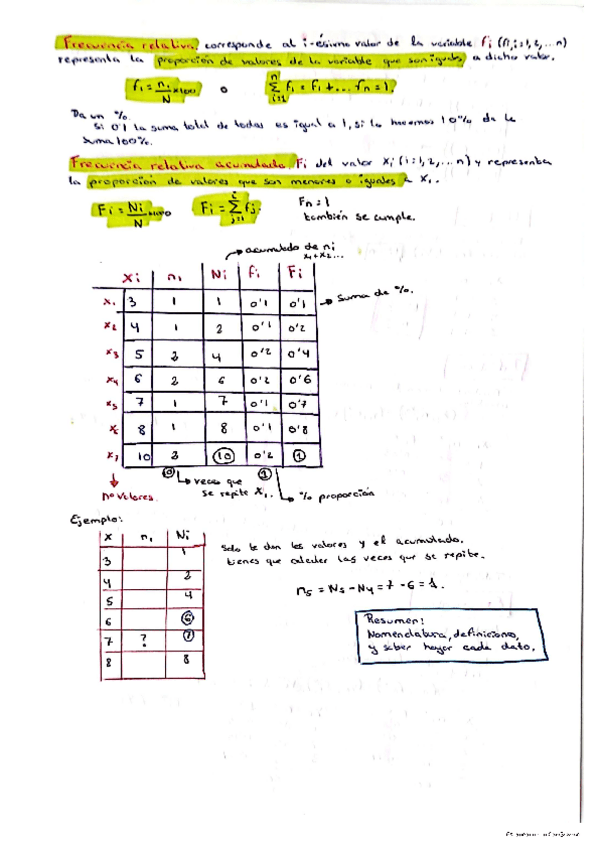 Frecuencia relativa, corresponde al i-ésimo valor de la variable fi (fi, i=1, 2, ... n)
representa la proporción de valores de la variable que son iguales a dicho valor.
fi = ni/N x100 o n Σ i=1 fi = f1 + ... fn = 1.
Da un %.
Si 0'1 la suma total de todas es igual a 1, si lo hacemos 10% da le
suma 100%.
Frecuencia relativa acumulada. Fi del valor Xi (i=1, 2, ... n) y representa
la proporción de valores que son menores o iguales a Xi.
Fi = Ni/N x100 Fi = i Σ j=1 fj. Fn = 1
también se cumple.
acumulado de ni
x1 + x2...
Xi ni Ni fi Fi
x1 3 1 1 0'1 0'1 Suma de %.
x2 4 1 2 0'1 0'2
x3 5 2 4 0'2 0'4
x4 6 2 6 0'2 0'6
x5 7 1 7 0'1 0'7
x6 8 1 8 0'1 0'8
x7 10 2 10 0'2 1
10 veces que 1
se repite Xi.
nº valores. % proporción
Ejemplo:
X ni Ni
3 1
4 2
5 4
6 6
7 ? 7
8 8
Solo te dan los valores y el acumulado.
tienes que calcular las veces que se repite.
n5 = N5 - N4 = 7 - 6 = 1.
Resumen:
Nomenclatura, definiciones,
y saber hayar cada dato.